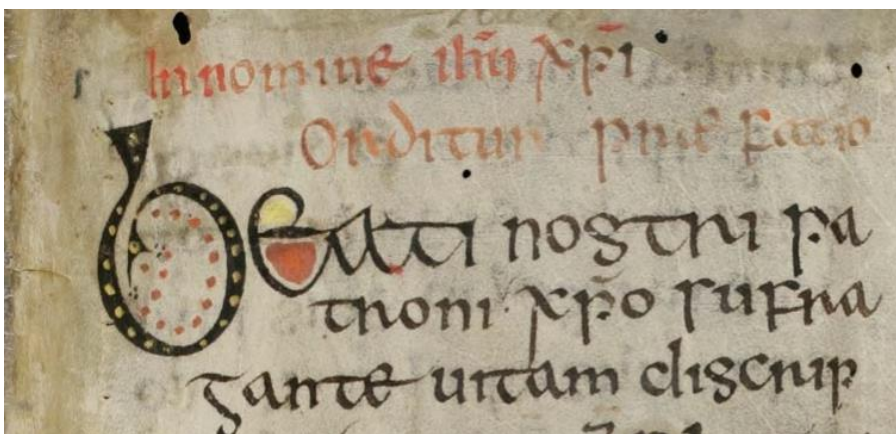 In nomine ih̅u xp̅i
Orditur praefatio
Beati nostri pa
troni xp̅o sufra
gante uitam discrip